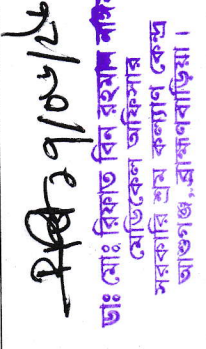 ৭/০৬/২৫
ডাঃ মোঃ রিফাত বিন রহমান
মেডিকেল অফিসার
সরকারি শ্রম কল্যাণ কেন্দ্র
আশুগঞ্জ, ব্রাহ্মণবাড়িয়া।